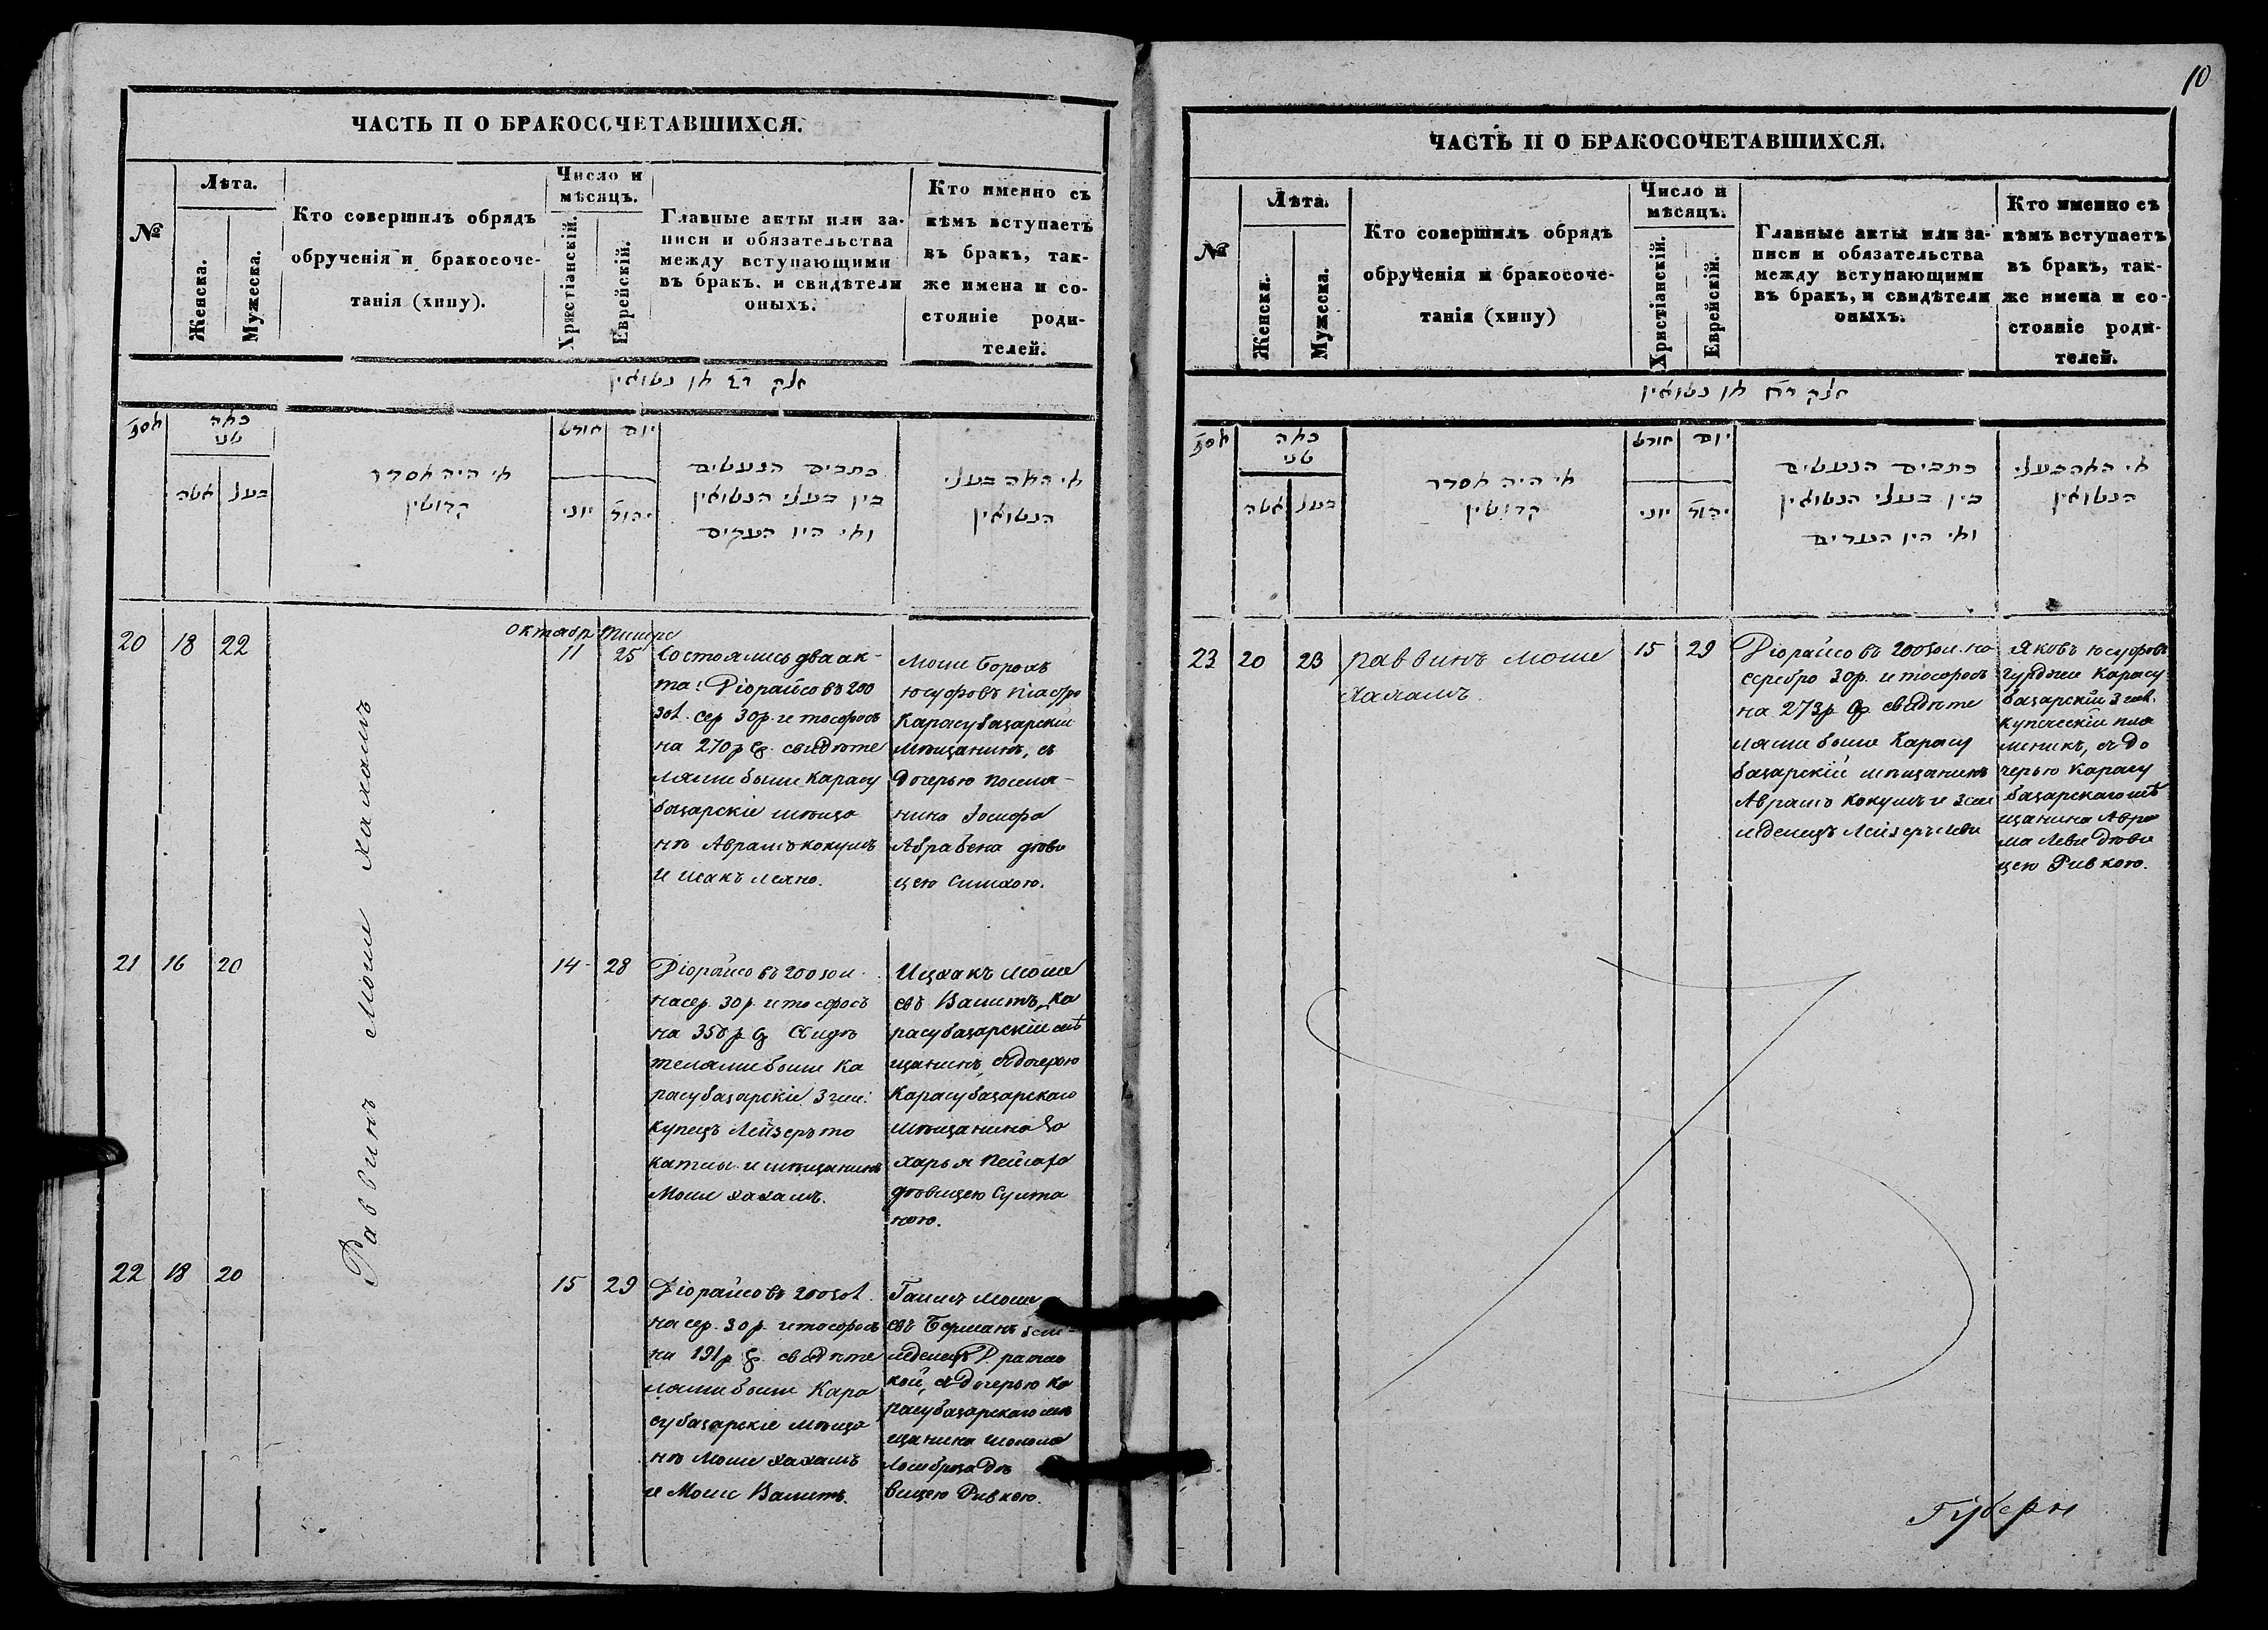 ЧАСТЬ II О БРАКОСОЧЕТАВШИХСЯ.
№
Лѣта.
Женска.
Мужеска.
Кто совершилъ обрядъ
обрученія и бракосоче-
танія (хипу).
Число и
мѣсяцъ.
Христіанскій.
Еврейскій.
Главные акты или за-
писи и обязательства
между вступающими
въ бракъ. и свидѣтели
оныхъ.
Кто именно съ
кѣмъ вступаетъ
въ бракъ, так-
же имена и со-
стояніе роди-
телей.
חלק ב מן נשואין
מספ
כמה
שני
אשה
בעל
מי היה מסדר
קדושין
חודש
יום
יוני
יהוד
כתבים הנעשים
בין בעלי הנשואין
ומי היו העדים
מי המה בעלי
הנשואין
Октябр Тишре
20
18
22
11
25
Состоялись два ак-
та: Діорайсо въ 200
зол. сер 30 р. и тосфосъ
на 270 р с. свидѣте
лями были Карасу
базарскіе мѣща
нѣ Аврамъ кокушъ
и исакъ
Моше Борохъ
юсуфовъ
Карасубазарскій
мѣщанинъ, съ
дочерью посели-
нина Іосифа
дѣви
цею Симхою.
Раввинъ Моше хахамъ
21
16
20
14
28
Діорайсо въ 200 зол.
на сер. 30 р. и тосфосъ
на 350 р с Свидѣ
телями были Ка
расубазарскіе 3 гил:
купецъ Лейзеръ то
катлы и мѣщанинъ
Моше хахамъ.
Ицхакъ Моше
евъ Валитъ, Ка
расубазарскій мѣ
щанинъ, съ дочерью
Карасубазарскаго
мѣщанина За
харья Пейсаха
дѣвицею Султа
ною.
22
18
20
15
29
Діорайсо въ 200 зол.
на сер. 30 р. и тосфосъ
на 191 р с. свидѣте
лями были Кара
субазарскіе мѣща
нѣ Моше хахамъ
и Моше Валитъ.
Моше
евъ Берманъ зем-
леделецъ
кой, съ дочерью Ка
расубазарскаго мѣ
щанина Шоломо
дѣ
вицею Ривкою.
10
ЧАСТЬ II О БРАКОСОЧЕТАВШИХСЯ.
№
Лѣта.
Женска.
Мужеска.
Кто совершилъ обрядъ
обрученія и бракосоче-
танія (хипу)
Число и
мѣсяцъ.
Христіанскій.
Еврейскій.
Главные акты или за-
писи и обязательства
между вступающими
въ бракъ, и свидѣтели
оныхъ.
Кто именно съ
кѣмъ вступаетъ
въ бракъ, так-
же имена и со-
стояніе роди-
телей.
חלק ב מן נשואין
מספ
כמה
שני
אשה
בעל
מי היה מסדר
קדושין
חודש
יום
יוני
יהוד
כתבים הנעשים
בין בעלי הנשואין
ומי היו העדים
מי המה בעלי
הנשואין
23
20
23
раввинъ Моше
Хахамъ.
15
29
Діорайсо въ 200 зол. на
серебро 30 р. и тосфосъ
на 273 р с. свидѣте
лями были Карасу
базарскій мѣщанинъ
Аврамъ Кокушъ и зем
леделецъ Лейзеръ Леви
Яковъ юсуфовъ
гурджи Карасу
базарскій 3 гил.
купеческій пле
меникъ, съ до
черью Карасу
базарскаго мѣ
щанина Авра
ма Леви дѣви
цею Ривкою.
Губерн